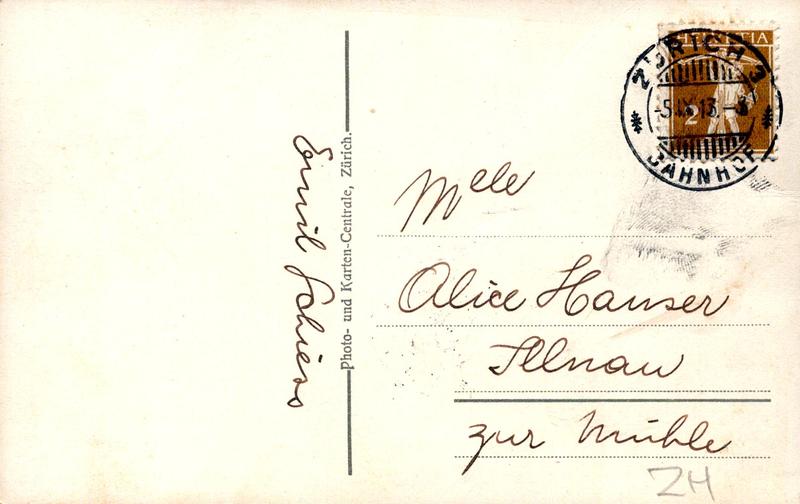 Emil Schiess
Photo- und Karten-Centrale, Zürich.
HELVETIA
2
ZÜRICH 3
-5.IX.13.-3
BAHNHOF
Mele
Alice Hauser
Illnau
zur Mühle
ZH